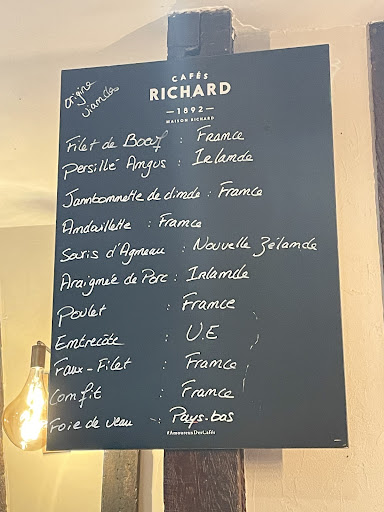 Origine
Viandes
CAFÉS
RICHARD
1892
MAISON RICHARD
Filet de Boeuf : France
Persillé Angus : Irlande
Jambonnette de dinde : France
Andouillette : France
Souris d'Agneau : Nouvelle Zélande
Araignée de Porc : Irlande
Poulet : France
Entrecôte : U.E
Faux-Filet : France
Confit : France
Foie de veau : Pays-bas
#AmoureuxDesCafés